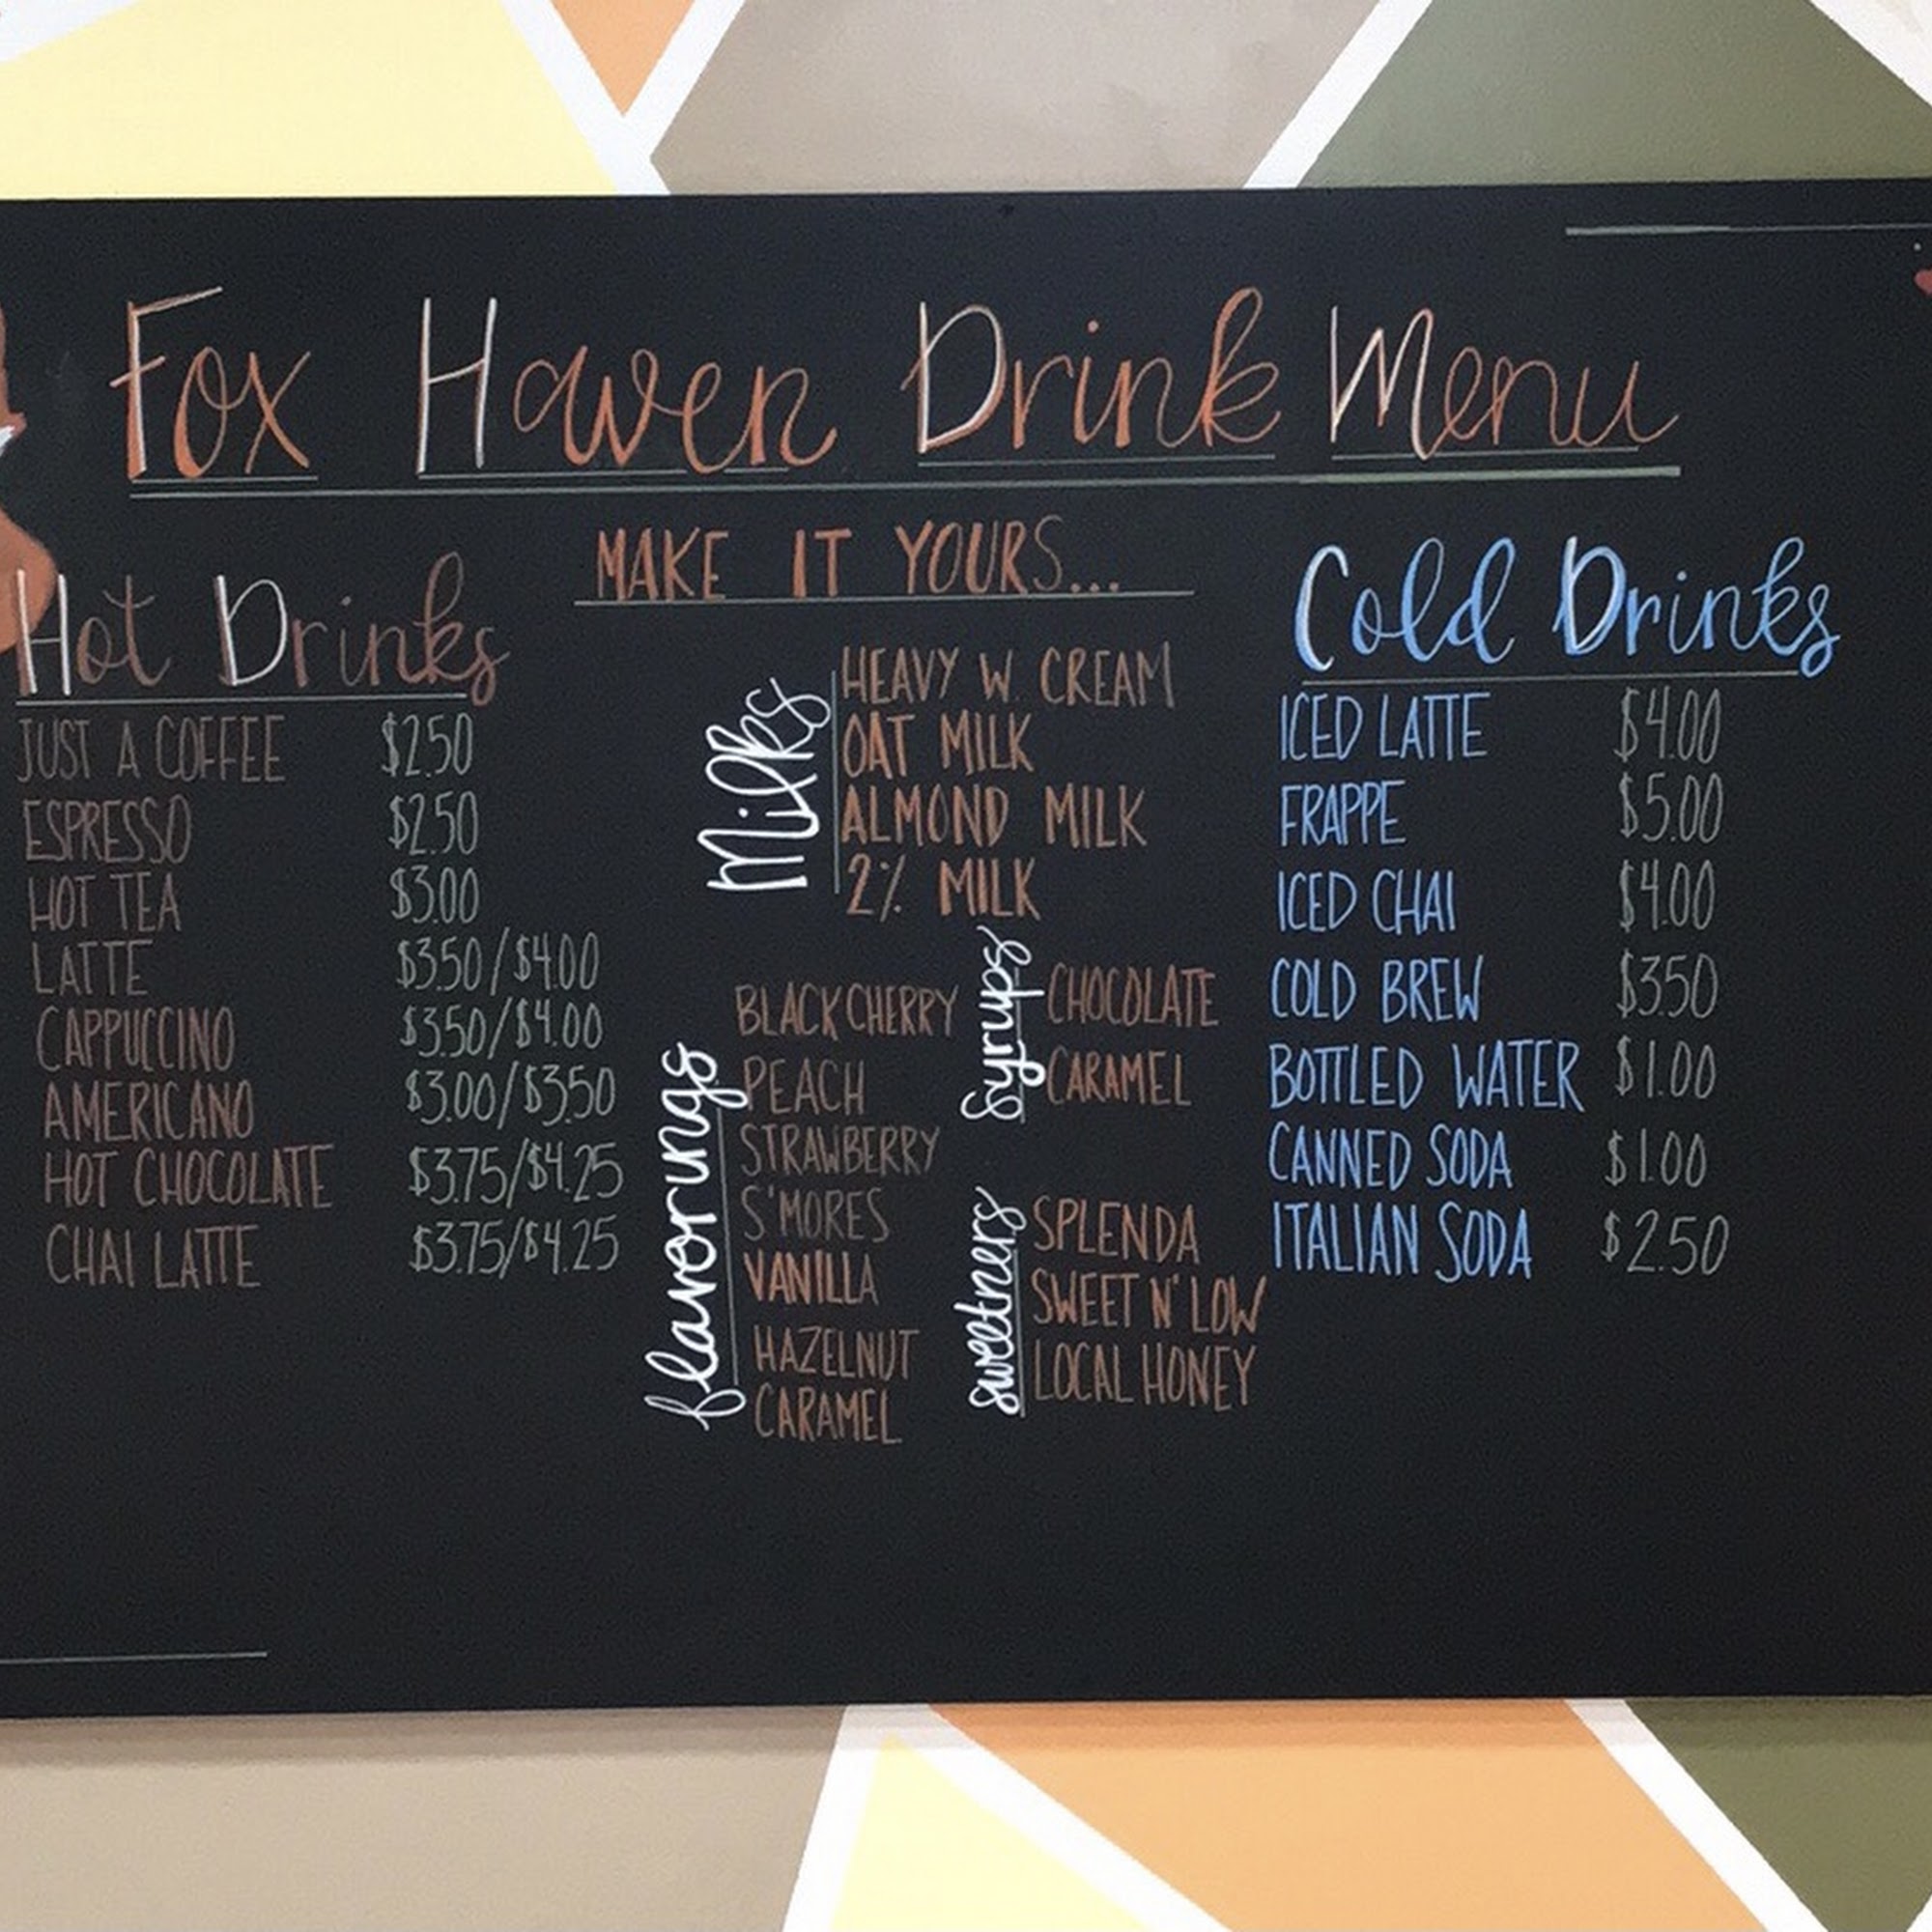 Fox Haven Drink Menu
Hot Drinks
JUST A COFFEE $2.50
ESPRESSO $2.50
HOT TEA $3.00
LATTE $3.50/$4.00
CAPPUCCINO $3.50/$4.00
AMERICANO $3.00/$3.50
HOT CHOCOLATE $3.75/$4.25
CHAI LATTE $3.75/$4.25
MAKE IT YOURS...
Milks
HEAVY W. CREAM
OAT MILK
ALMOND MILK
2% MILK
flavorings
BLACK CHERRY
PEACH
STRAWBERRY
S'MORES
VANILLA
HAZELNUT
CARAMEL
Syrups
CHOCOLATE
CARAMEL
sweetners
SPLENDA
SWEET N' LOW
LOCAL HONEY
Cold Drinks
ICED LATTE $4.00
FRAPPE $5.00
ICED CHAI $4.00
COLD BREW $3.50
BOTTLED WATER $1.00
CANNED SODA $1.00
ITALIAN SODA $2.50